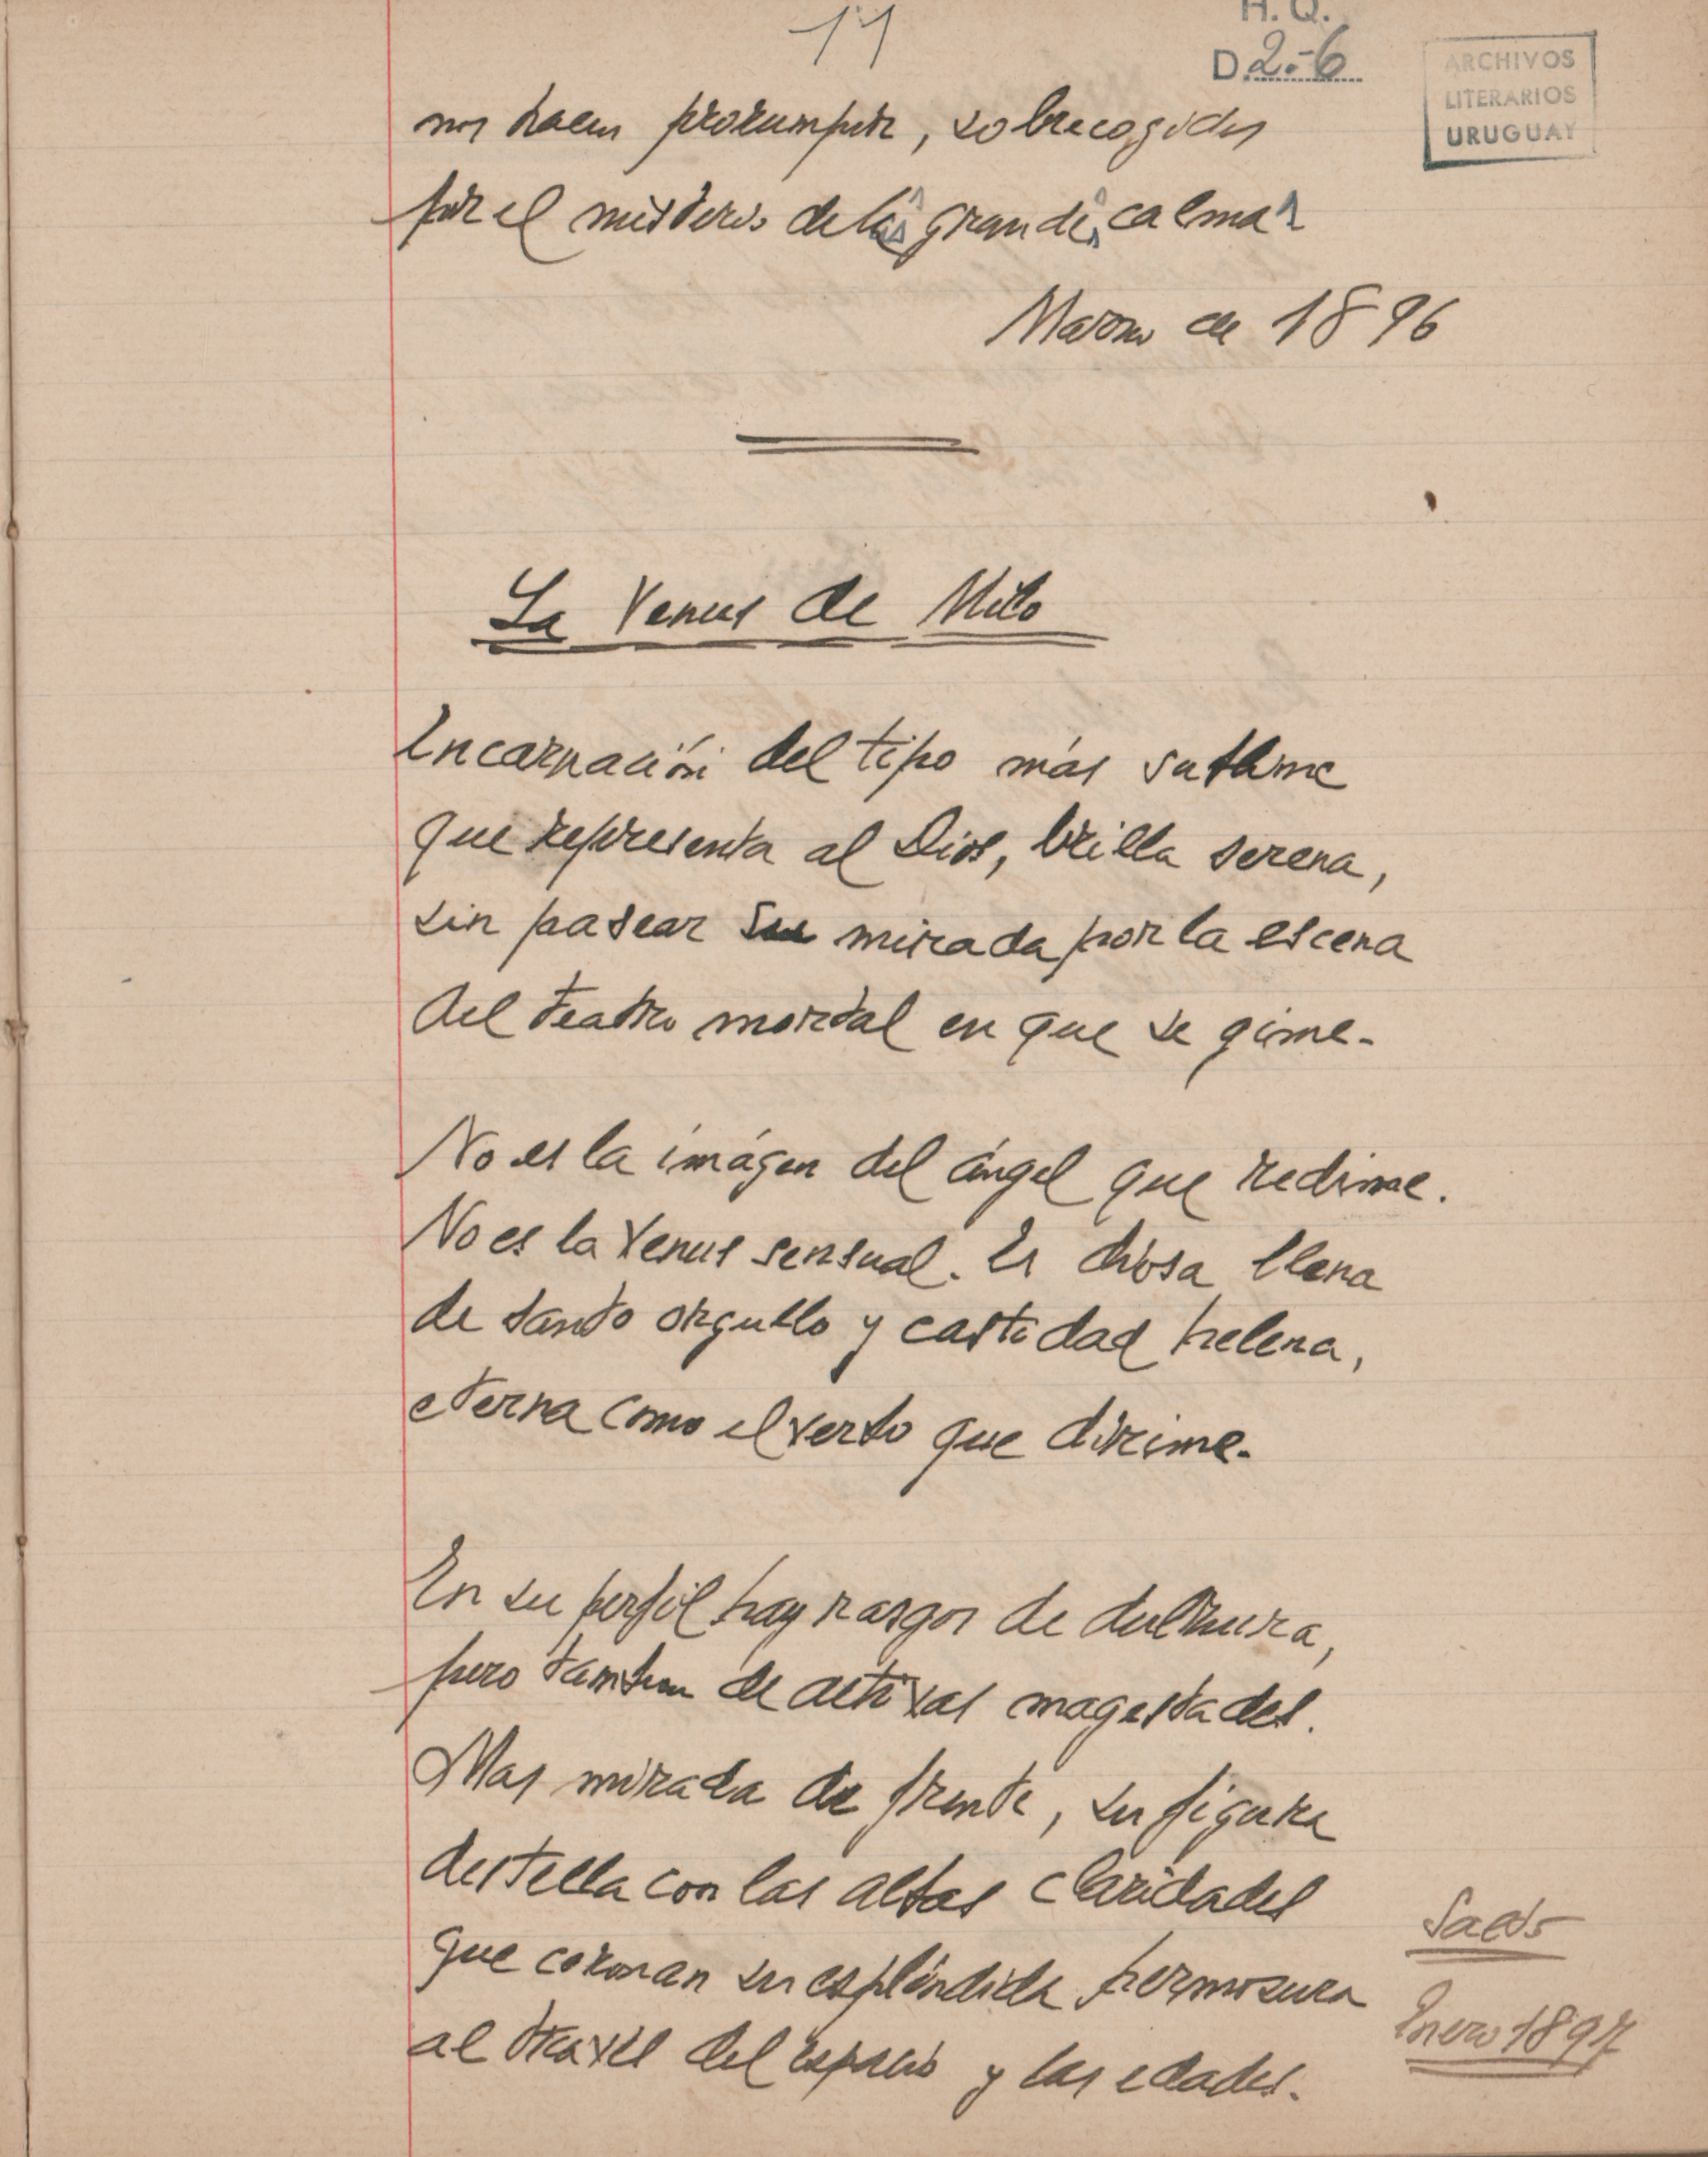 11
H. Q.
D. 2.-6
ARCHIVOS
LITERARIOS
URUGUAY
nos hacen prorumpir, sobrecogidos
por el misterio de las grandes calmas
Marzo de 1896
La Venus de Milo
Encarnación del tipo más sublime
que representa al Dios, brilla serena,
sin pasear su mirada por la escena
del teatro mortal en que se gime.
No es la imágen del ángel que redime.
No es la Venus sensual. Es diosa llena
de santo orgullo y castidad helena,
eterna como el verbo que dirime.
En su perfil hay rasgos de dulzura,
pero tambien de altivas magestades.
Mas mirada de frente, su figura
destella con las altas claridades
que coronan su espléndida hermosura
al través del espacio y las edades.
Salto
Enero 1897